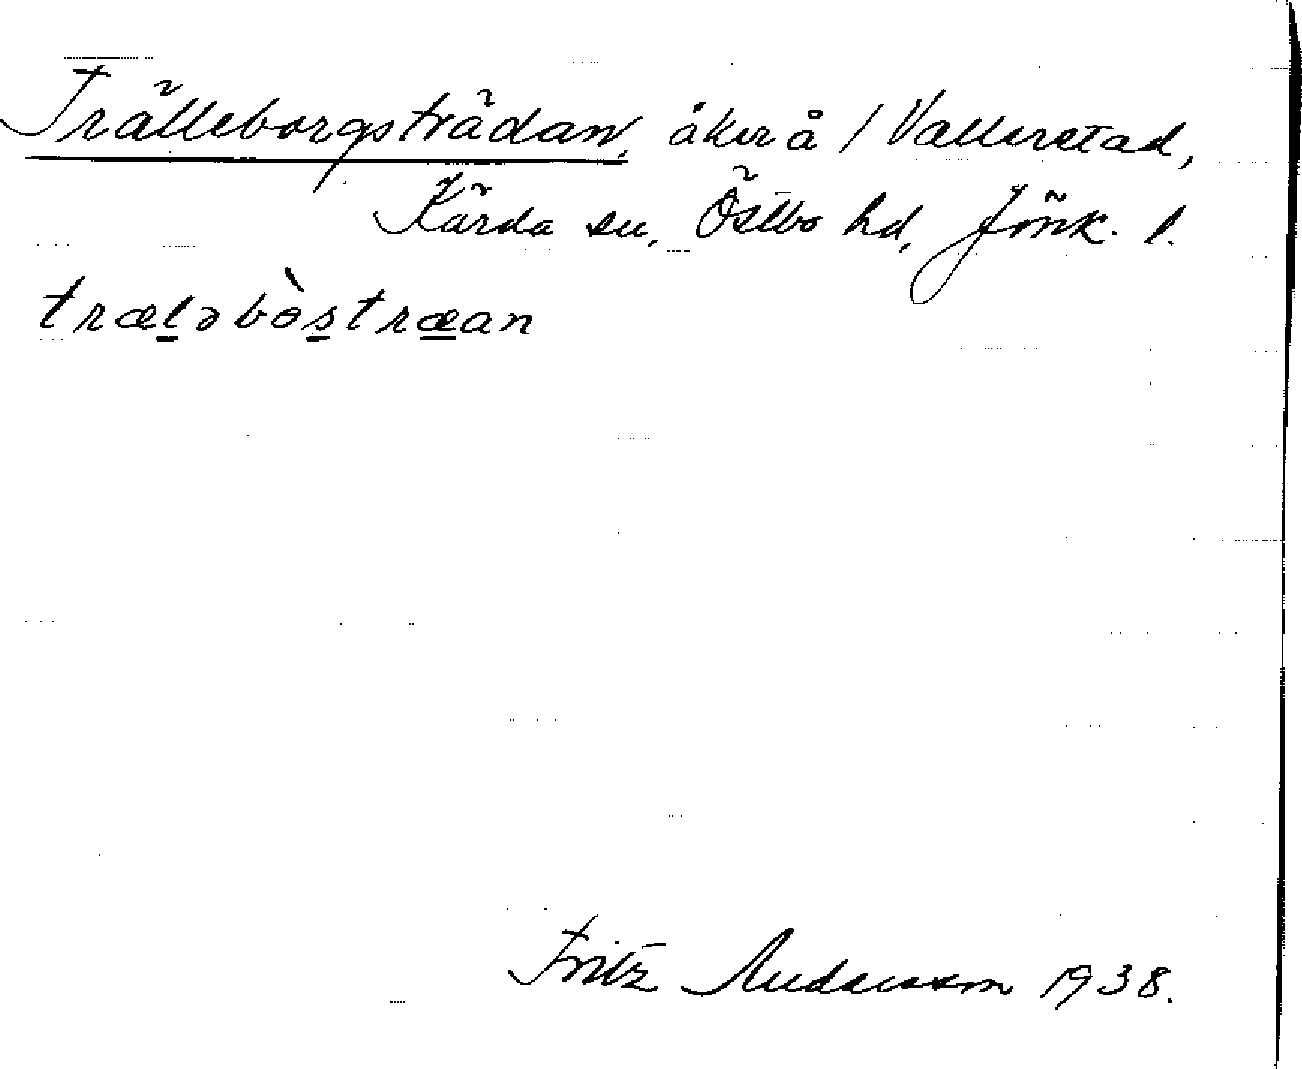 Trälleborgsträdan, åker å 1 Vallerstad,
Kärda sn, Östbo hd, Jönk. l.
trælǝbòstræan
Fritz Andersson 1938.